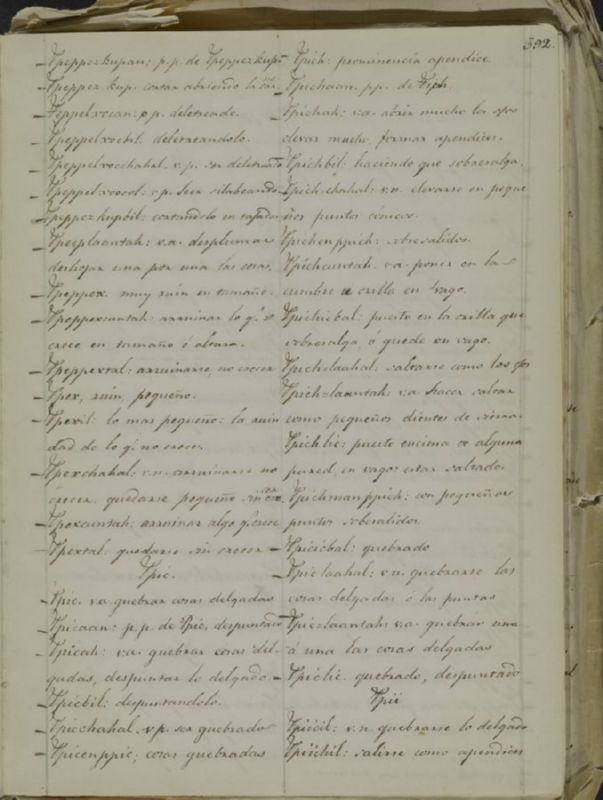 392.
Ppeppezkupan: p.p. de Ppeppezkup.
Ppeppez kup. cortar abriendo
Ppeppelxocan: p.p. deletreado.
Ppeppelxocbil. deletreandolo.
Ppeppelxocchahal. v.p. ser deletreado
Ppeppelxocol. v.p. Seer silabeando
Ppeppezkupbil: cortandolo en
Ppeeplaantah: v.a. desplumar
deshojar una por una las cosas.
Ppeppex. muy ruin en tamaño.
Ppeppexcuntah: arruinar lo q.e
crece en tamaño ó altura.
Ppeppextal: arruinarse, no crecer
Ppex, ruin, pequeño.
Ppexil: lo mas pequeño: la ruin
dad de lo q.e no crece.
Ppexchahal: v.n. arruinarse no
crecer. quedarse pequeño sin
Ppexcuntah: arruinar algo q.e crece
Ppextal: quedarse sin crecer
Ppic.
Ppic. v.a. quebrar cosas delgadas
Ppicaan: p.p. de Ppic, despuntado
Ppicah: v.a. quebrar cosas del-
gadas, despuntar lo delgado.
Ppicbil: despuntandolo.
Ppicchahal v.p. ser quebrado
Ppicenppic; cosas quebradas
Ppich: prominencia apendice.
Ppichaan. pp. de Ppich
Ppichah: v.a. abrir mucho los ojos
elevar mucho, formar apendices.
Ppichbil: haciendo que sobresalga.
Ppich-chahal: v.n. elevarse en peque
ños puntos cónicos.
Ppichenppich: sobresalidos.
Ppichcuntah. v.a. poner en la
cumbre u orilla en vago.
Ppichicbal: puesto en la orilla que
sobresalga, ó quede en vago.
Ppichlaahal: saltarse como los ojos
Ppichlaantah: v.a. hacer saltar
como pequeños dientes de sierra.
Ppichlic: puesto encima de alguna
pared, en vago: estar saltado.
Ppichmanppich: con pequeños
puntos sobresalidos.
Ppicicbal: quebrado
Ppiclaahal: v.n. quebrarse las
cosas delgadas ó las puntas
Ppiclaantah: v.a. quebrar una
á una las cosas delgadas
Ppiclic. quebrado, despuntado
Ppii
Ppiicil: v.n. quebrarse lo delgado
Ppiichil: salirse como apendices